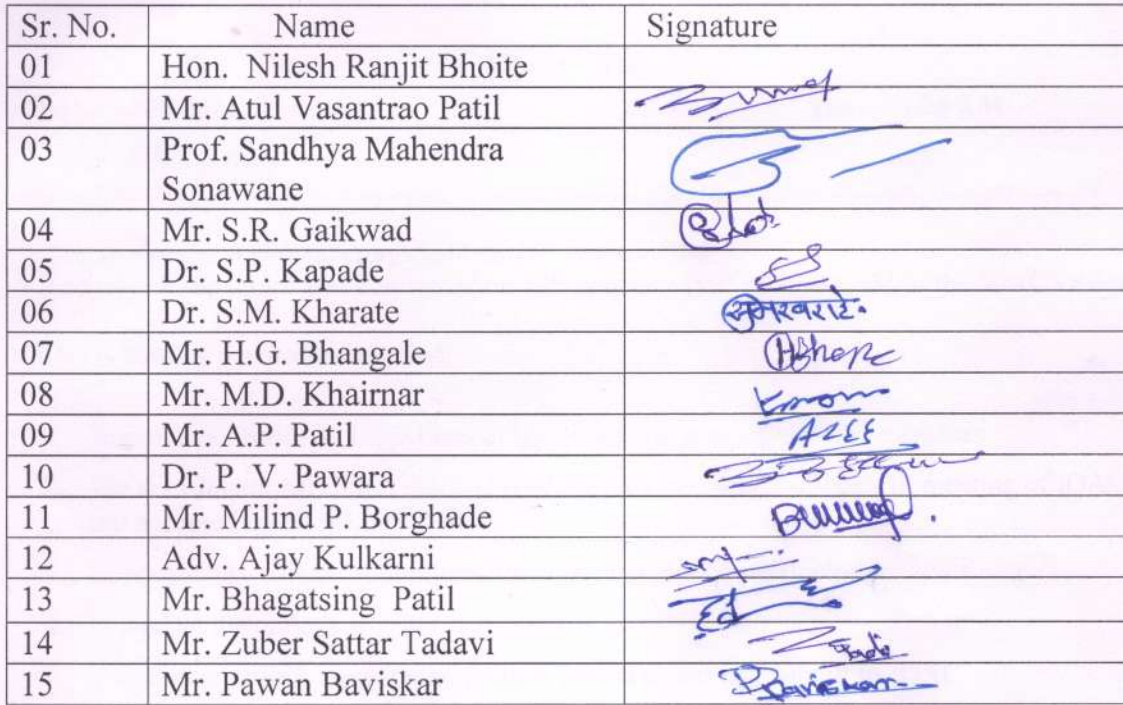 Sr. No. Name Signature
01 Hon. Nilesh Ranjit Bhoite
02 Mr. Atul Vasantrao Patil
03 Prof. Sandhya Mahendra
Sonawane
04 Mr. S.R. Gaikwad
05 Dr. S.P. Kapade
06 Dr. S.M. Kharate
07 Mr. H.G. Bhangale
08 Mr. M.D. Khairnar
09 Mr. A.P. Patil
10 Dr. P. V. Pawara
11 Mr. Milind P. Borghade
12 Adv. Ajay Kulkarni
13 Mr. Bhagatsing Patil
14 Mr. Zuber Sattar Tadavi
15 Mr. Pawan Baviskar